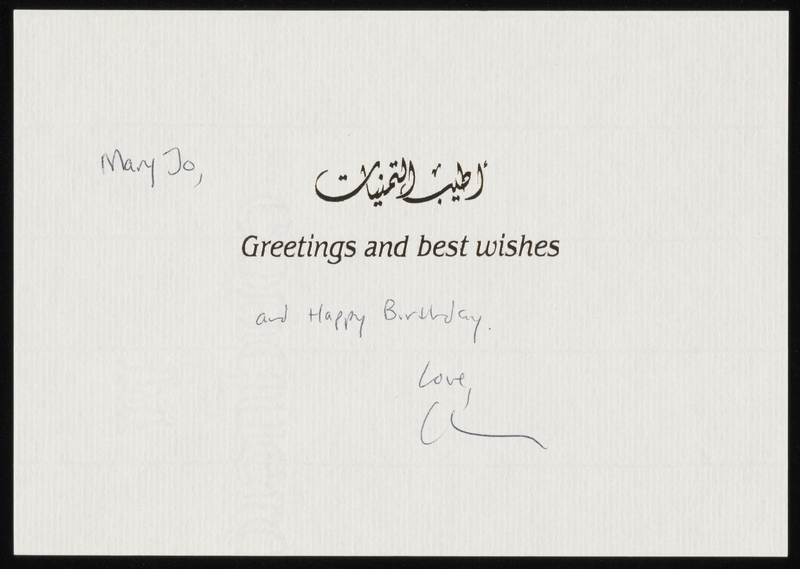 Mary Jo,
أطيب التمنيات
Greetings and best wishes
and Happy Birthday.
Love,